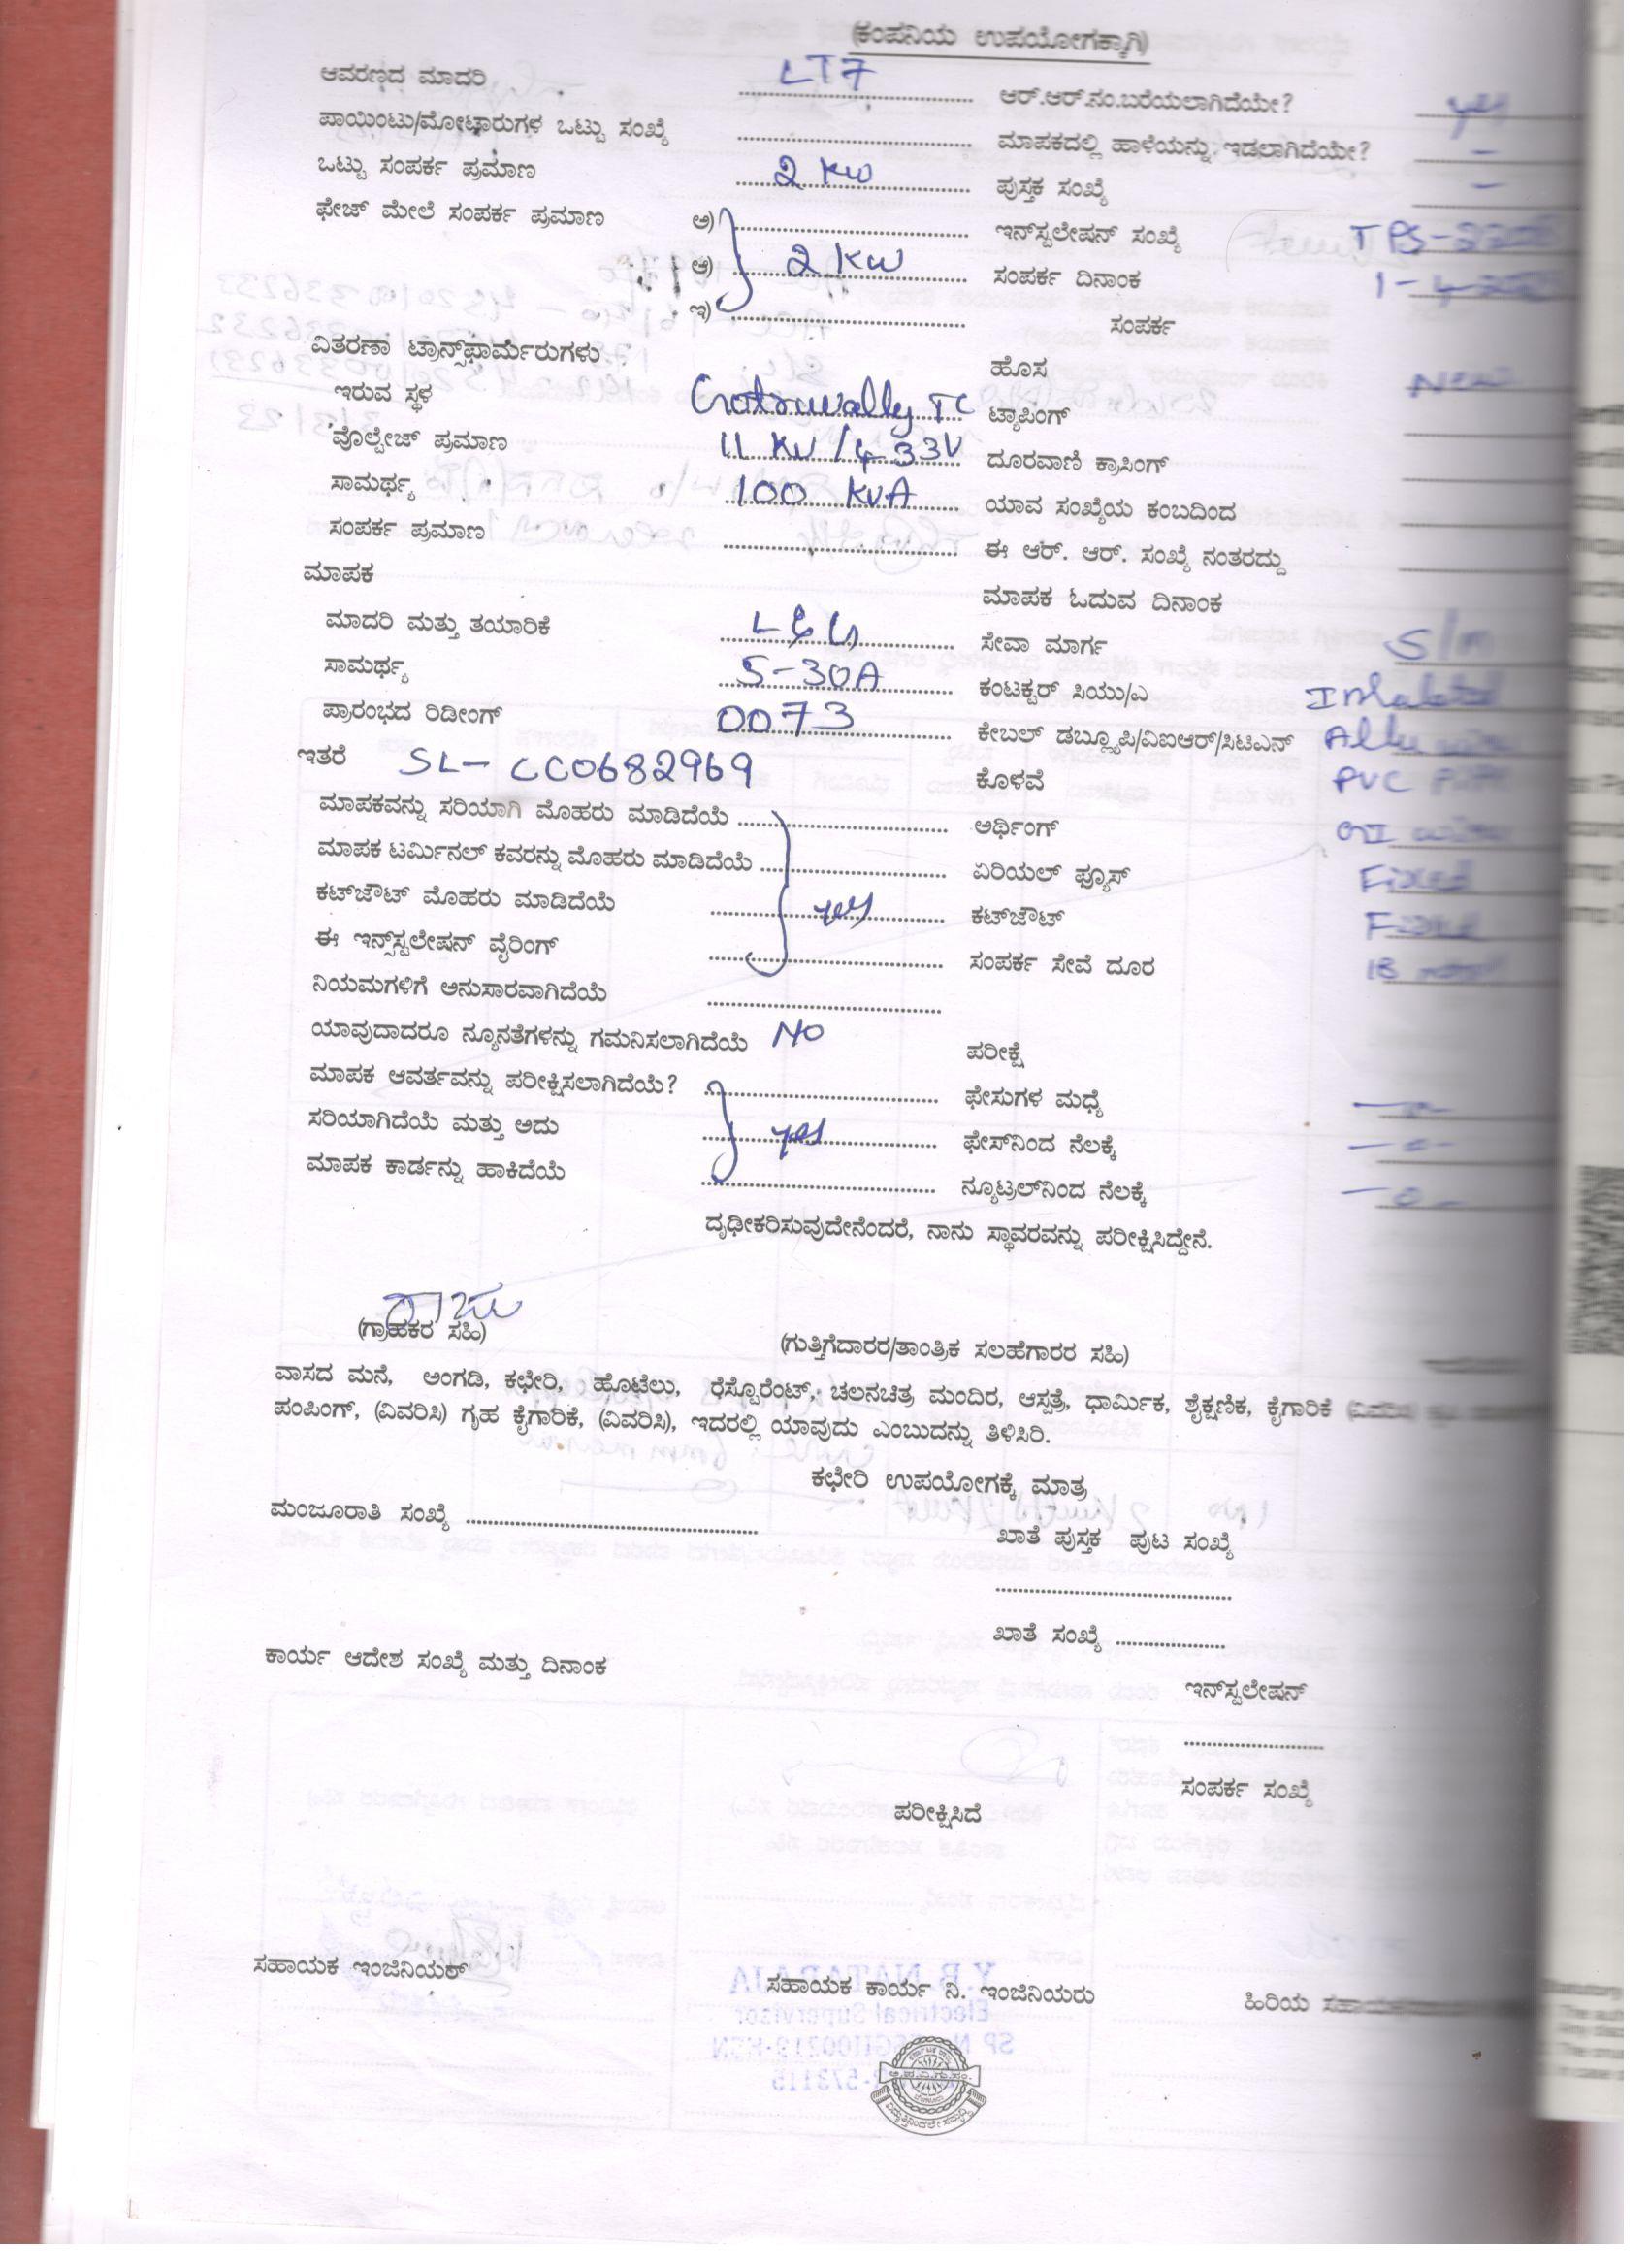 (ಕಂಪನಿಯ ಉಪಯೋಗಕ್ಕಾಗಿ)
ಆವರಣದ ಮಾದರಿ LT7 ಆರ್.ಆರ್.ನಂ.ಬರೆಯಲಾಗಿದೆಯೇ? yes
ಪಾಯಿಂಟು/ಮೋಟಾರುಗಳ ಒಟ್ಟು ಸಂಖ್ಯೆ ಮಾಪಕದಲ್ಲಿ ಹಾಳೆಯನ್ನು ಇಡಲಾಗಿದೆಯೇ? –
ಒಟ್ಟು ಸಂಪರ್ಕ ಪ್ರಮಾಣ 2 KW ಪುಸ್ತಕ ಸಂಖ್ಯೆ –
ಫೇಜ್ ಮೇಲೆ ಸಂಪರ್ಕ ಪ್ರಮಾಣ ಅ) ಇನ್‌ಸ್ಟಲೇಷನ್ ಸಂಖ್ಯೆ
ಆ) 2 KW ಸಂಪರ್ಕ ದಿನಾಂಕ
ಇ) ಸಂಪರ್ಕ
ವಿತರಣಾ ಟ್ರಾನ್ಸ್‌ಫಾರ್ಮರುಗಳು ಹೊಸ New
ಇರುವ ಸ್ಥಳ TC ಟ್ಯಾಪಿಂಗ್
ವೊಲ್ಟೇಜ್ ಪ್ರಮಾಣ 11 KV / 433V ದೂರವಾಣಿ ಕ್ರಾಸಿಂಗ್
ಸಾಮರ್ಥ್ಯ 100 KVA ಯಾವ ಸಂಖ್ಯೆಯ ಕಂಬದಿಂದ
ಸಂಪರ್ಕ ಪ್ರಮಾಣ ಈ ಆರ್. ಆರ್. ಸಂಖ್ಯೆ ನಂತರದ್ದು
ಮಾಪಕ ಮಾಪಕ ಓದುವ ದಿನಾಂಕ
ಮಾದರಿ ಮತ್ತು ತಯಾರಿಕೆ L&G ಸೇವಾ ಮಾರ್ಗ
ಸಾಮರ್ಥ್ಯ 5-30A ಕಂಟಕ್ಟರ್ ಸಿಯು/ಎ
ಪ್ರಾರಂಭದ ರಿಡೀಂಗ್ 0073 ಕೇಬಲ್ ಡಬ್ಲ್ಯೂಪಿ/ವಿಐಆರ್/ಸಿಟಿಎನ್
ಇತರೆ SL- CC0682969 ಕೊಳವೆ PVC
ಮಾಪಕವನ್ನು ಸರಿಯಾಗಿ ಮೊಹರು ಮಾಡಿದೆಯೆ ಅರ್ಥಿಂಗ್
ಮಾಪಕ ಟರ್ಮಿನಲ್ ಕವರನ್ನು ಮೊಹರು ಮಾಡಿದೆಯೆ ಏರಿಯಲ್ ಫ್ಯೂಸ್ Fixed
ಕಟ್‌ಜೌಟ್ ಮೊಹರು ಮಾಡಿದೆಯೆ yes ಕಟ್‌ಜೌಟ್ Fixed
ಈ ಇನ್ಸ್‌ಸ್ಟಲೇಷನ್ ವೈರಿಂಗ್ ಸಂಪರ್ಕ ಸೇವೆ ದೂರ
ನಿಯಮಗಳಿಗೆ ಅನುಸಾರವಾಗಿದೆಯೆ
ಯಾವುದಾದರೂ ನ್ಯೂನತೆಗಳನ್ನು ಗಮನಿಸಲಾಗಿದೆಯೆ NO ಪರೀಕ್ಷೆ
ಮಾಪಕ ಆವರ್ತವನ್ನು ಪರೀಕ್ಷಿಸಲಾಗಿದೆಯೆ? ಫೇಸುಗಳ ಮಧ್ಯೆ
ಸರಿಯಾಗಿದೆಯೆ ಮತ್ತು ಅದು yes ಫೇಸ್‌ನಿಂದ ನೆಲಕ್ಕೆ
ಮಾಪಕ ಕಾರ್ಡನ್ನು ಹಾಕಿದೆಯೆ ನ್ಯೂಟ್ರಲ್‌ನಿಂದ ನೆಲಕ್ಕೆ –0–
ದೃಢೀಕರಿಸುವುದೇನೆಂದರೆ, ನಾನು ಸ್ಥಾವರವನ್ನು ಪರೀಕ್ಷಿಸಿದ್ದೇನೆ.
ರಾಜು
(ಗ್ರಾಹಕರ ಸಹಿ) (ಗುತ್ತಿಗೆದಾರರ/ತಾಂತ್ರಿಕ ಸಲಹೆಗಾರರ ಸಹಿ)
ವಾಸದ ಮನೆ, ಅಂಗಡಿ, ಕಛೇರಿ, ಹೊಟೆಲು, ರೆಸ್ಟೊರೆಂಟ್, ಚಲನಚಿತ್ರ ಮಂದಿರ, ಆಸ್ಪತ್ರೆ, ಧಾರ್ಮಿಕ, ಶೈಕ್ಷಣಿಕ, ಕೈಗಾರಿಕೆ (ವಿವರಿಸಿ)
ಪಂಪಿಂಗ್, (ವಿವರಿಸಿ) ಗೃಹ ಕೈಗಾರಿಕೆ, (ವಿವರಿಸಿ), ಇದರಲ್ಲಿ ಯಾವುದು ಎಂಬುದನ್ನು ತಿಳಿಸಿರಿ.
ಕಛೇರಿ ಉಪಯೋಗಕ್ಕೆ ಮಾತ್ರ
ಮಂಜೂರಾತಿ ಸಂಖ್ಯೆ ಖಾತೆ ಪುಸ್ತಕ ಪುಟ ಸಂಖ್ಯೆ
ಖಾತೆ ಸಂಖ್ಯೆ
ಕಾರ್ಯ ಆದೇಶ ಸಂಖ್ಯೆ ಮತ್ತು ದಿನಾಂಕ
ಇನ್‌ಸ್ಟಲೇಷನ್
ಸಂಪರ್ಕ ಸಂಖ್ಯೆ
ಪರೀಕ್ಷಿಸಿದೆ
ಸಹಾಯಕ ಇಂಜಿನಿಯರ್ ಸಹಾಯಕ ಕಾರ್ಯ ನಿ. ಇಂಜಿನಿಯರು ಹಿರಿಯ